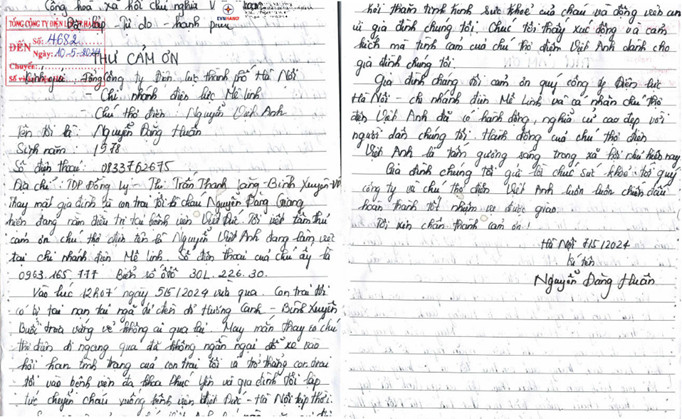 Cộng hoà xã hội chủ nghĩa V
Độc lập Tự do - hạnh phúc
EVNHANOI
TỔNG CÔNG TY ĐIỆN LỰC
ĐẾN
Số: 4682
Ngày: 10-5-2024
Chuyển:
THƯ CẢM ƠN
Kính gửi: Tổng Công ty Điện lực thành phố Hà Nội
- Chi nhánh điện lực Mê linh
- Chú thợ điện: Nguyễn Việt Anh
Tên tôi là: Nguyễn Đăng Huấn
Sinh năm: 1978
Số điện thoại: 0833762675
Địa chỉ: TDP Đồng Lý - Thị Trấn Thanh Lãng - Bình Xuyên - VP
Thay mặt gia đình là con trai tôi là cháu Nguyễn Đăng Giang
hiện đang nằm điều trị tại bệnh viện Việt Đức. Tôi viết tâm thư
cảm ơn chú thợ điện tên là Nguyễn Việt Anh đang làm việc
tại chi nhánh điện Mê linh. Số điện thoại của chú ấy là
0963.165.777 Biển số ôtô 30L.226.30.
Vào lúc 12h07 ngày 5/5/2024 vừa qua. Con trai tôi
có bị tai nạn tại ngã di chen đi Hương Canh - Bình Xuyên
Buổi trưa vắng vẻ không ai qua lại. May mắn thay có chú
thợ điện đi ngang qua đã không ngần ngại đỗ xe vào
hỏi han tình trạng của con trai tôi và trở thẳng con trai
tôi vào bệnh viện đa khoa Phúc Yên và gia đình tôi lập
tức chuyển cháu xuống bệnh viện Việt Đức - Hà Nội kịp thời.
hỏi thăm tình hình sức khoẻ của cháu và động viên an
ủi gia đình chúng tôi. Chúc tôi thấy xúc động và cảm
kích mà tình cảm của chú thợ điện Việt Anh dành cho
gia đình chúng tôi.
Gia đình chúng tôi cảm ơn quý công ty Điện lực
Hà Nội - chi nhánh điện Mê Linh và cá nhân chú thợ
điện Việt Anh đã có hành động, nghĩa cử cao đẹp với
người dân chúng tôi. Hành động của chú thợ điện
Việt Anh là tấm gương sáng trong xã hội như hiện nay
Gia đình chúng tôi gửi lời chúc sức khoẻ tới quý
công ty và chú thợ điện Việt Anh luôn luôn chiến đấu
hoàn thành tốt nhiệm vụ được giao.
Tôi xin chân thành cảm ơn!
Hà Nội 7/5/2024
Ký tên
Nguyễn Đăng Huấn